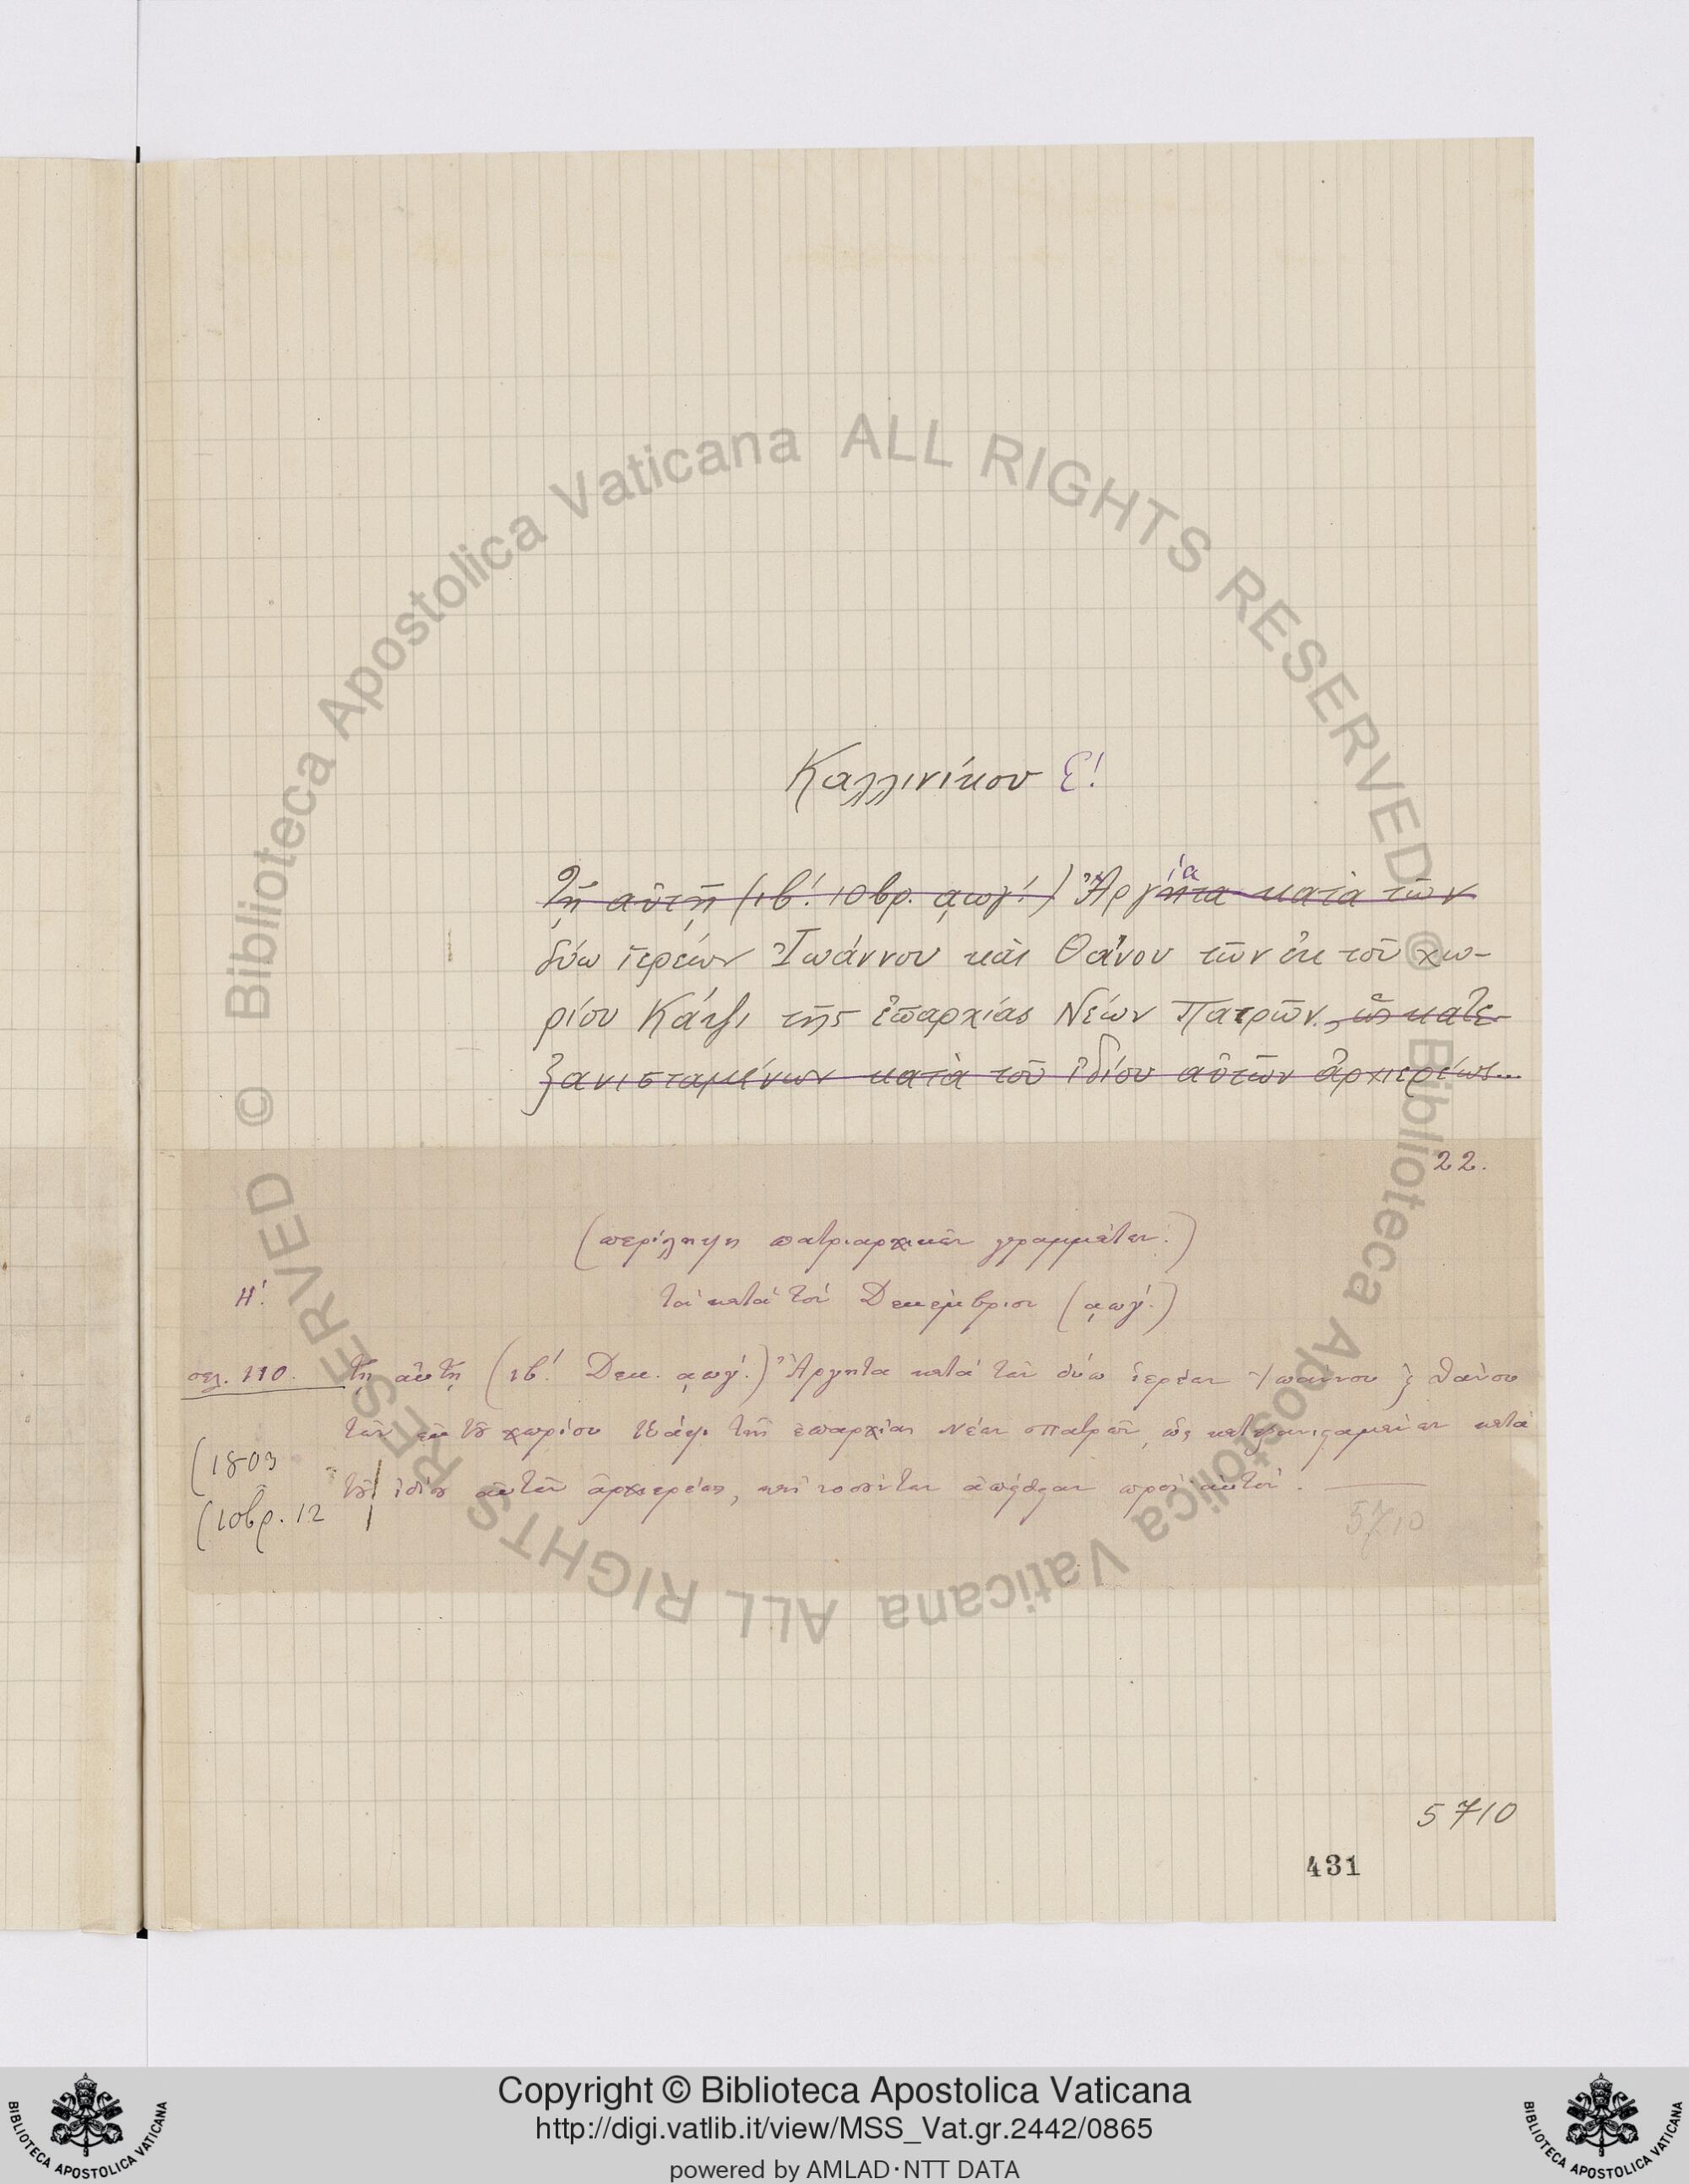 Καλλινίκου Ε΄.
Τῇ αὐτῇ (ιβ΄. 10βρ. ͵αωγ΄.) Ἀργήτα ία κατὰ τῶν
δύω ἱερέων Ἰωάννου καὶ Θάνου τῶν ἐκ τοῦ χω-
ρίου Κάψι τῆς ἐπαρχίας Νέων Πατρῶν, ὡς κατε-
ξανισταμένων κατὰ τοῦ ἰδίου αὐτῶν ἀρχιερέως...
22.
(περίληψη πατριαρχικῶν γραμμάτων.)
Η΄. τὰ κατὰ τὸν Δεκέμβριον (͵αωγ΄.)
σελ. 110. τῇ αὐτῇ (ιβ΄. Δεκ. ͵αωγ΄.) Ἀργητα κατὰ τῶν δύω ἱερέων Ἰωάννου ϗ Θάνου
τῶν ἐκ τȣ͂ χωρίου Κάψι τῆς ἐπαρχίας Νέων Πατρῶν, ὡς κατεξανιϛαμένων κατὰ
(1803
τȣ͂ ἰδίȣ αὐτῶν ἀρχιερέως, πρὸς αὐτόν.
(10βρ. 12
5710
5710
431
Copyright © Biblioteca Apostolica Vaticana
http://digi.vatlib.it/view/MSS_Vat.gr.2442/0865
powered by AMLAD·NTT DATA
BIBLIOTECA APOSTOLICA VATICANA
BIBLIOTECA APOSTOLICA VATICANA
© Biblioteca Apostolica Vaticana ALL RIGHTS RESERVED
© Biblioteca Apostolica Vaticana ALL RIGHTS RESERVED